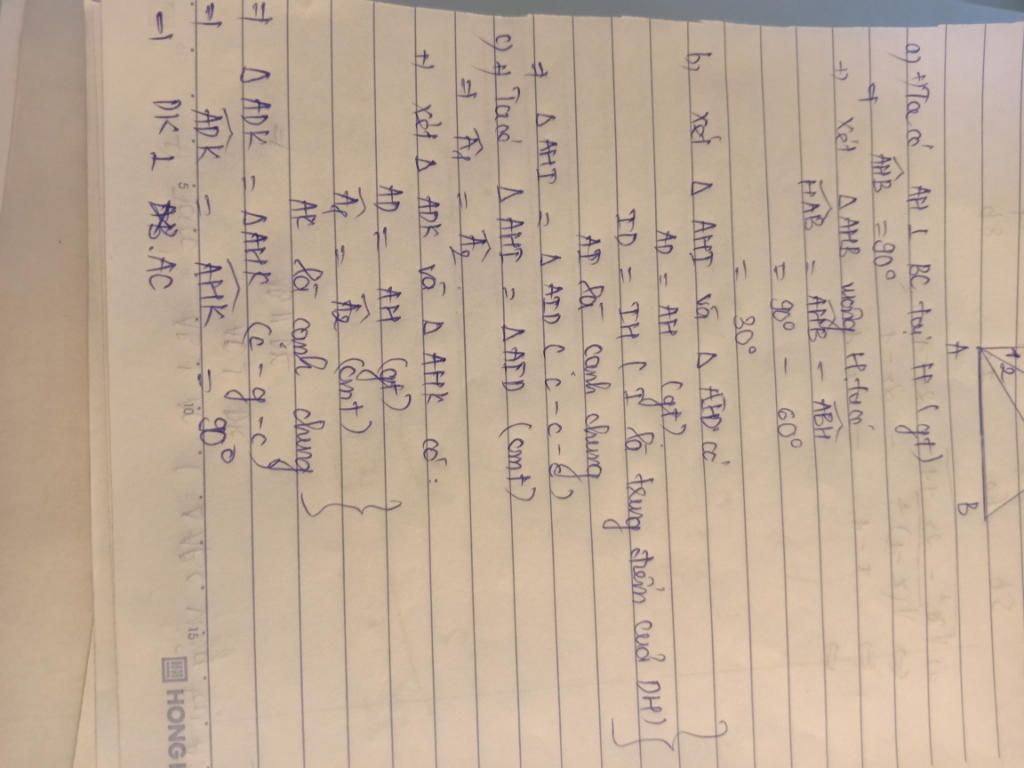 A B
1 2
a) +) Ta có AH ⊥ BC tại H (gt)
⇒ AHB = 90°
+) xét △ AHB vuông H có
HAB = AHB - ABH
= 90° - 60°
= 30°
b, xét △ AHI và △ AHD có
AD = AH (gt)
ID = IH ( I là trung điểm của DH)
AI là cạnh chung
⇒ △ AHI = △ AID ( c - c - c)
c) +) Ta có △ AHI = △ AID (cmt)
⇒ A1 = A2
+) xét △ ADK và △ AHK có:
AD = AH (gt)
A1 = A2 (cmt)
AK là cạnh chung
⇒ △ ADK = △ AHK (c - g - c)
⇒ ADK = AHK = 90°
⇒ DK ⊥ AC
HONG